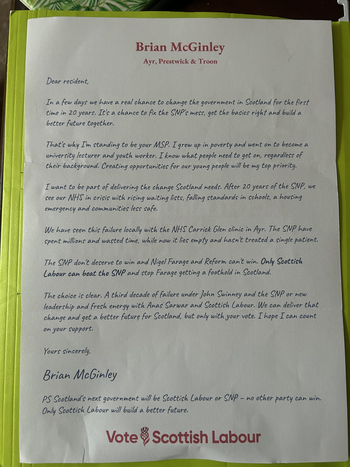 Brian McGinley
Ayr, Prestwick & Troon
Dear resident,
In a few days we have a real chance to change the government in Scotland for the first
time in 20 years. It's a chance to fix the SNP's mess, get the basics right and build a
better future together.
That's why I'm standing to be your MSP. I grew up in poverty and went on to become a
university lecturer and youth worker. I know what people need to get on, regardless of
their background. Creating opportunities for our young people will be my top priority.
I want to be part of delivering the change Scotland needs. After 20 years of the SNP, we
see our NHS in crisis with rising waiting lists, falling standards in schools, a housing
emergency and communities less safe.
We have seen this failure locally with the NHS Carrick Glen clinic in Ayr. The SNP have
spent millions and wasted time, while now it lies empty and hasn't treated a single patient.
The SNP don't deserve to win and Nigel Farage and Reform can't win. Only Scottish
Labour can beat the SNP and stop Farage getting a foothold in Scotland.
The choice is clear. A third decade of failure under John Swinney and the SNP or new
leadership and fresh energy with Anas Sarwar and Scottish Labour. We can deliver that
change and get a better future for Scotland, but only with your vote. I hope I can count
on your support.
Yours sincerely,
Brian McGinley
PS Scotland's next government will be Scottish Labour or SNP – no other party can win.
Only Scottish Labour will build a better future.
Vote Scottish Labour